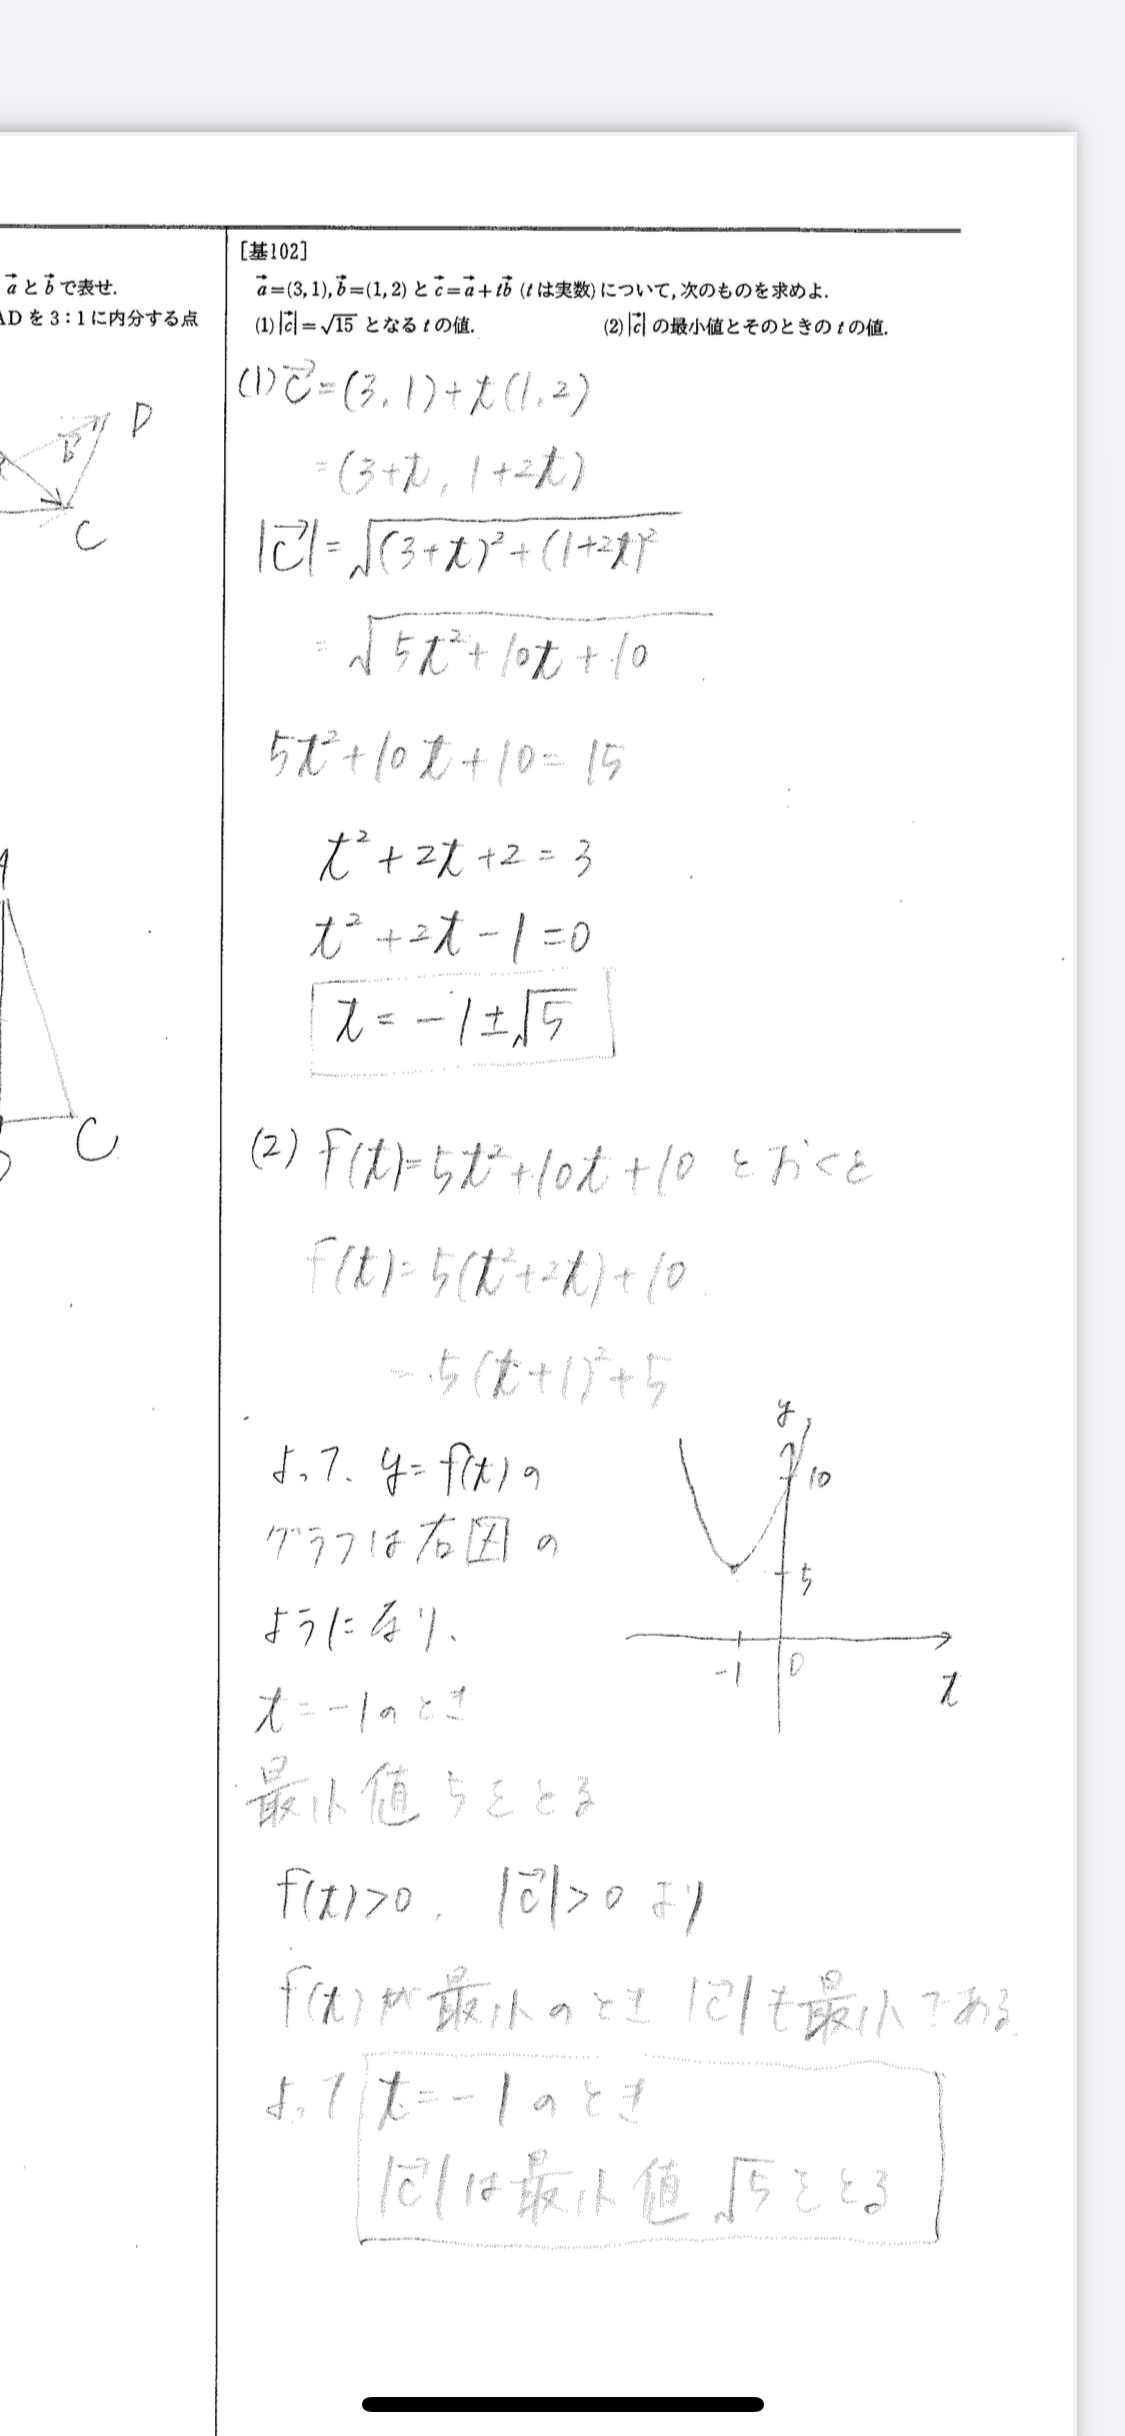 [基102]
a⃗とb⃗で表せ.
a⃗=(3,1), b⃗=(1,2) と c⃗=a⃗+tb⃗ (tは実数) について, 次のものを求めよ.
ADを3:1に内分する点
(1) |c⃗|=√15 となる t の値.
(2) |c⃗| の最小値とそのときの t の値.
D
b⃗
C
A
C
(1) c⃗=(3,1)+t(1,2)
=(3+t, 1+2t)
|c⃗|=√(3+t)²+(1+2t)²
=√5t²+10t+10
5t²+10t+10=15
t²+2t+2=3
t²+2t-1=0
t=-1±√5
(2) f(t)=5t²+10t+10 とおくと
f(t)=5(t²+2t)+10
=5(t+1)²+5
よって、y=f(t)の
グラフは右図の
ようになり、
t=-1のとき
最小値5をとる
y
10
5
-1
0
t
f(t)>0, |c⃗|>0 より
f(t)が最小のとき|c⃗|も最小である
よって t=-1のとき
|c⃗|は最小値√5をとる